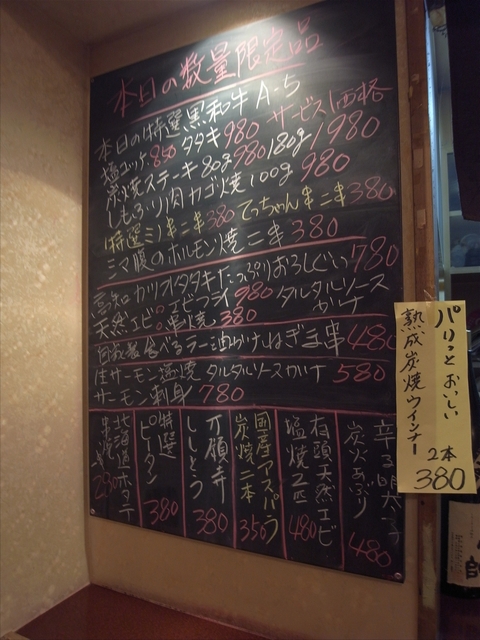 本日の数量限定品
本日の特選黒和牛 A-5
塩ユッケ 880 タタキ 980 サービス価格
炭焼ステーキ 80g 980 180g 1980
しもふり肉カゴ焼 100g 980
特選ミノ串二串 380 てっちゃん串二串 380
シマ腹のホルモン焼二串 380
高知カツオタタキたっぷりおろしぐい 780
天然エビ エビフライ 980 タルタルソースかけ
串焼 380
自家製食べるラー油かけねぎま串 480
生サーモン塩焼 タルタルソースかけ 580
サーモン刺身 780
辛子明太子 炭火あぶり 480
有頭天然エビ 塩焼2匹 480
国産アスパラ 炭焼二本 350
万願寺ししとう 380
特選ピータン 380
北海道ホタテ 串焼
パリっとおいしい
熟成炭焼ウインナー
2本
380